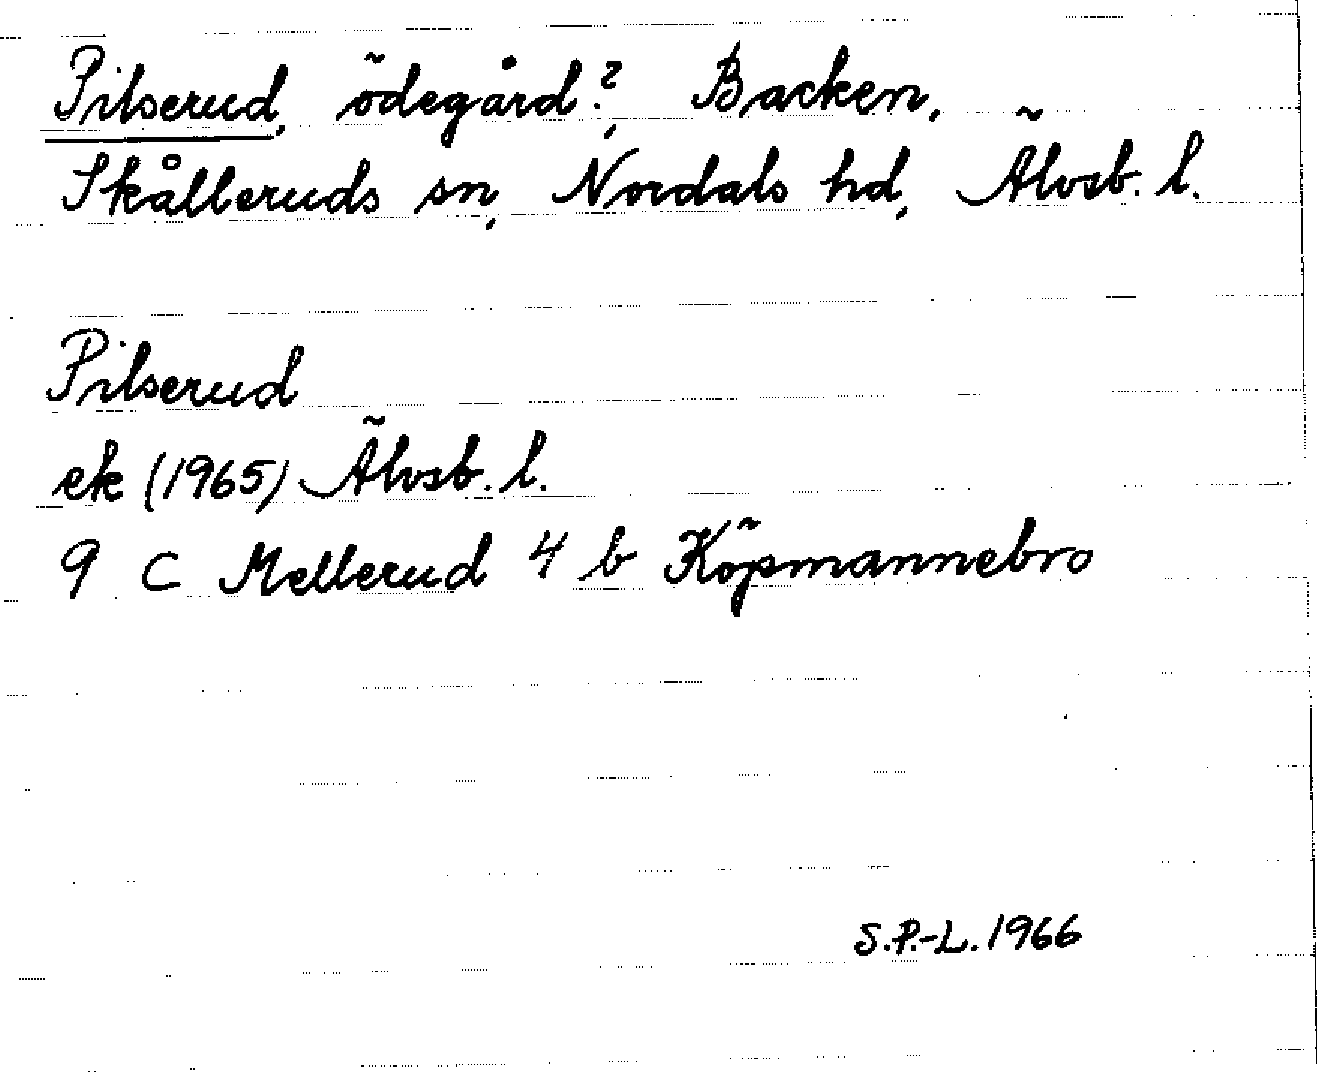 Pilserud, ödegård?, Backen,
Skålleruds sn, Nordals hd, Älvsb. l.
Pilserud
ek (1965) Älvsb. l.
9 C Mellerud 4 b Köpmannebro
S.P.-L. 1966